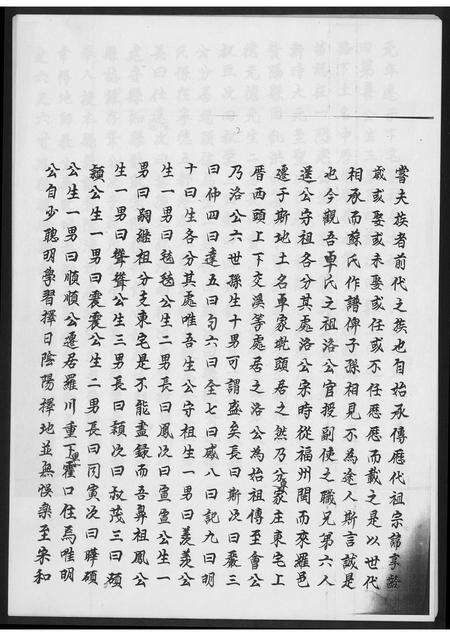 嘗夫族者前代之族也自始承傳歷代祖宗諱字諡
歲或娶或未娶或任或不任歷歷而載之是以世代
相承而蘇氏作譜俾子孫相見不為途人斯言誠是
也今觀吾卓氏之祖洛公官授副使之職兄弟六人
送公守祖各分其處洛公宋時從福州閩而來羅邑
遷于斯地土名卓家坑頭居之然乃分家庄東宅上
厝西頭上下交溪等處居之洛公為始祖傳至會公
乃洛公六世孫生十男可謂盛矣長曰斯次曰 三
曰仲四曰達五曰 六曰全七曰盛八曰記九曰明
十曰生各分其處唯吾生公守祖生一男曰羨羨公
生一男曰 公生二男長曰鳳次曰 公生一
男曰嗣繼祖分支東宅是不能盡錄而吾鼻祖鳳公
生一男曰聳聳公生三男長曰頴次曰叔茂三曰碩
頴公生一男曰震震公生二男長曰同寅次曰曄碩
公生一男曰順順公遷居羅川重下 霍口住焉唯明
公自少聰明學習擇日陰陽擇地並無悞樂至宋和